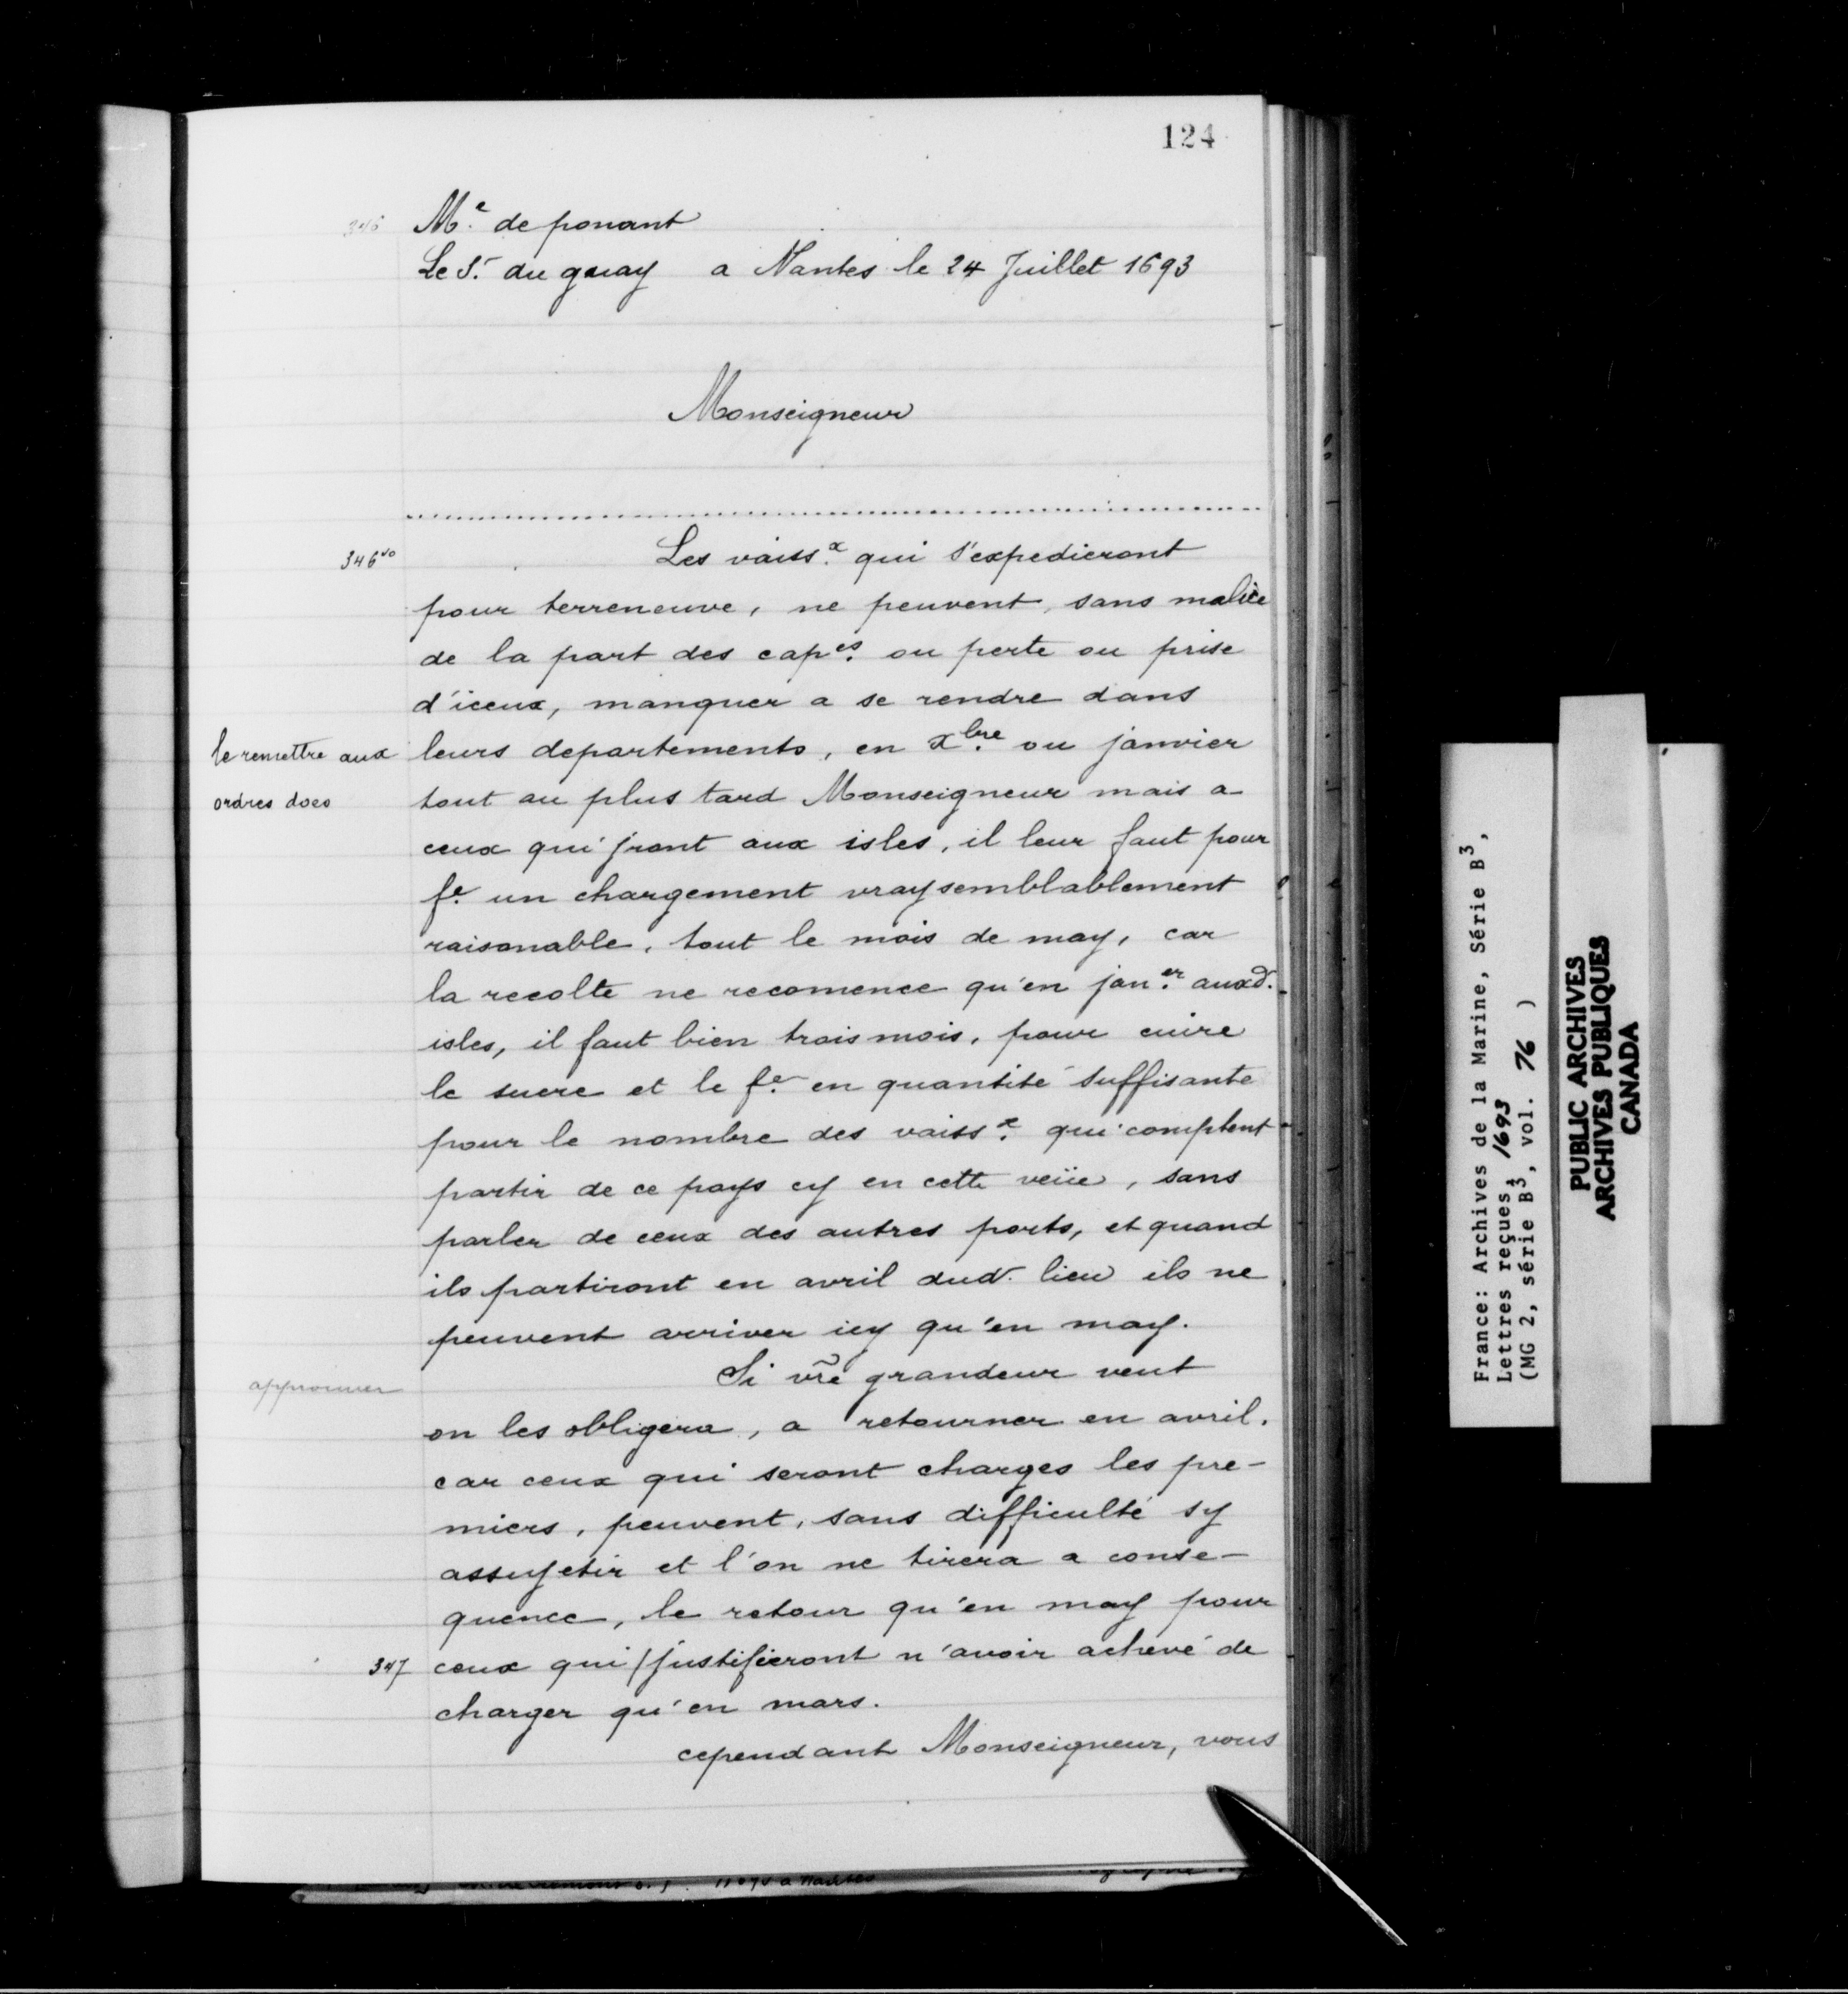 124
346 Me. de ponant
Le Sr. du guay a Nantes le 24 Juillet 1693
Monseigneur
346vo Les vaissx. qui s'expedieront
pour terreneuve, ne peuvent, sans malice
de la part des capes. ou perte ou prise
d'iceux, manquer a se rendre dans
le remettre aux leurs departements, en xbre. ou janvier
ordres tout au plus tard Monseigneur mais a
ceux qui jront aux isles, il leur faut pour
fe. un chargement vraysemblablement
raisonable, tout le mois de may, car
la recolte ne recomence qu'en janer. auxd.
isles, il faut bien trois mois, pour cuire
le sucre et le fe. en quantité suffisante
pour le nombre des vaissx. qui comptent
partir de ce pays cy en cette veüe, sans
parler de ceux des autres ports, et quand
ils partiront en avril dud. lieu ils ne
peuvent arriver icy qu'en may.
approuver Si vr̃e grandeur veut
on les obligera, a retourner en avril,
car ceux qui seront charges les pre-
miers, peuvent, sans difficulté sy
assujetir et l'on ne tirera a conse-
quence, le retour qu'en may pour
347 ceux qui / justifieront n'avoir achevé de
charger qu'en mars.
cependant Monseigneur, vous
France: Archives de la Marine, Série B3,
Lettres reçues, 1693
(MG 2, série B3, vol. 76 )
PUBLIC ARCHIVES
ARCHIVES PUBLIQUES
CANADA